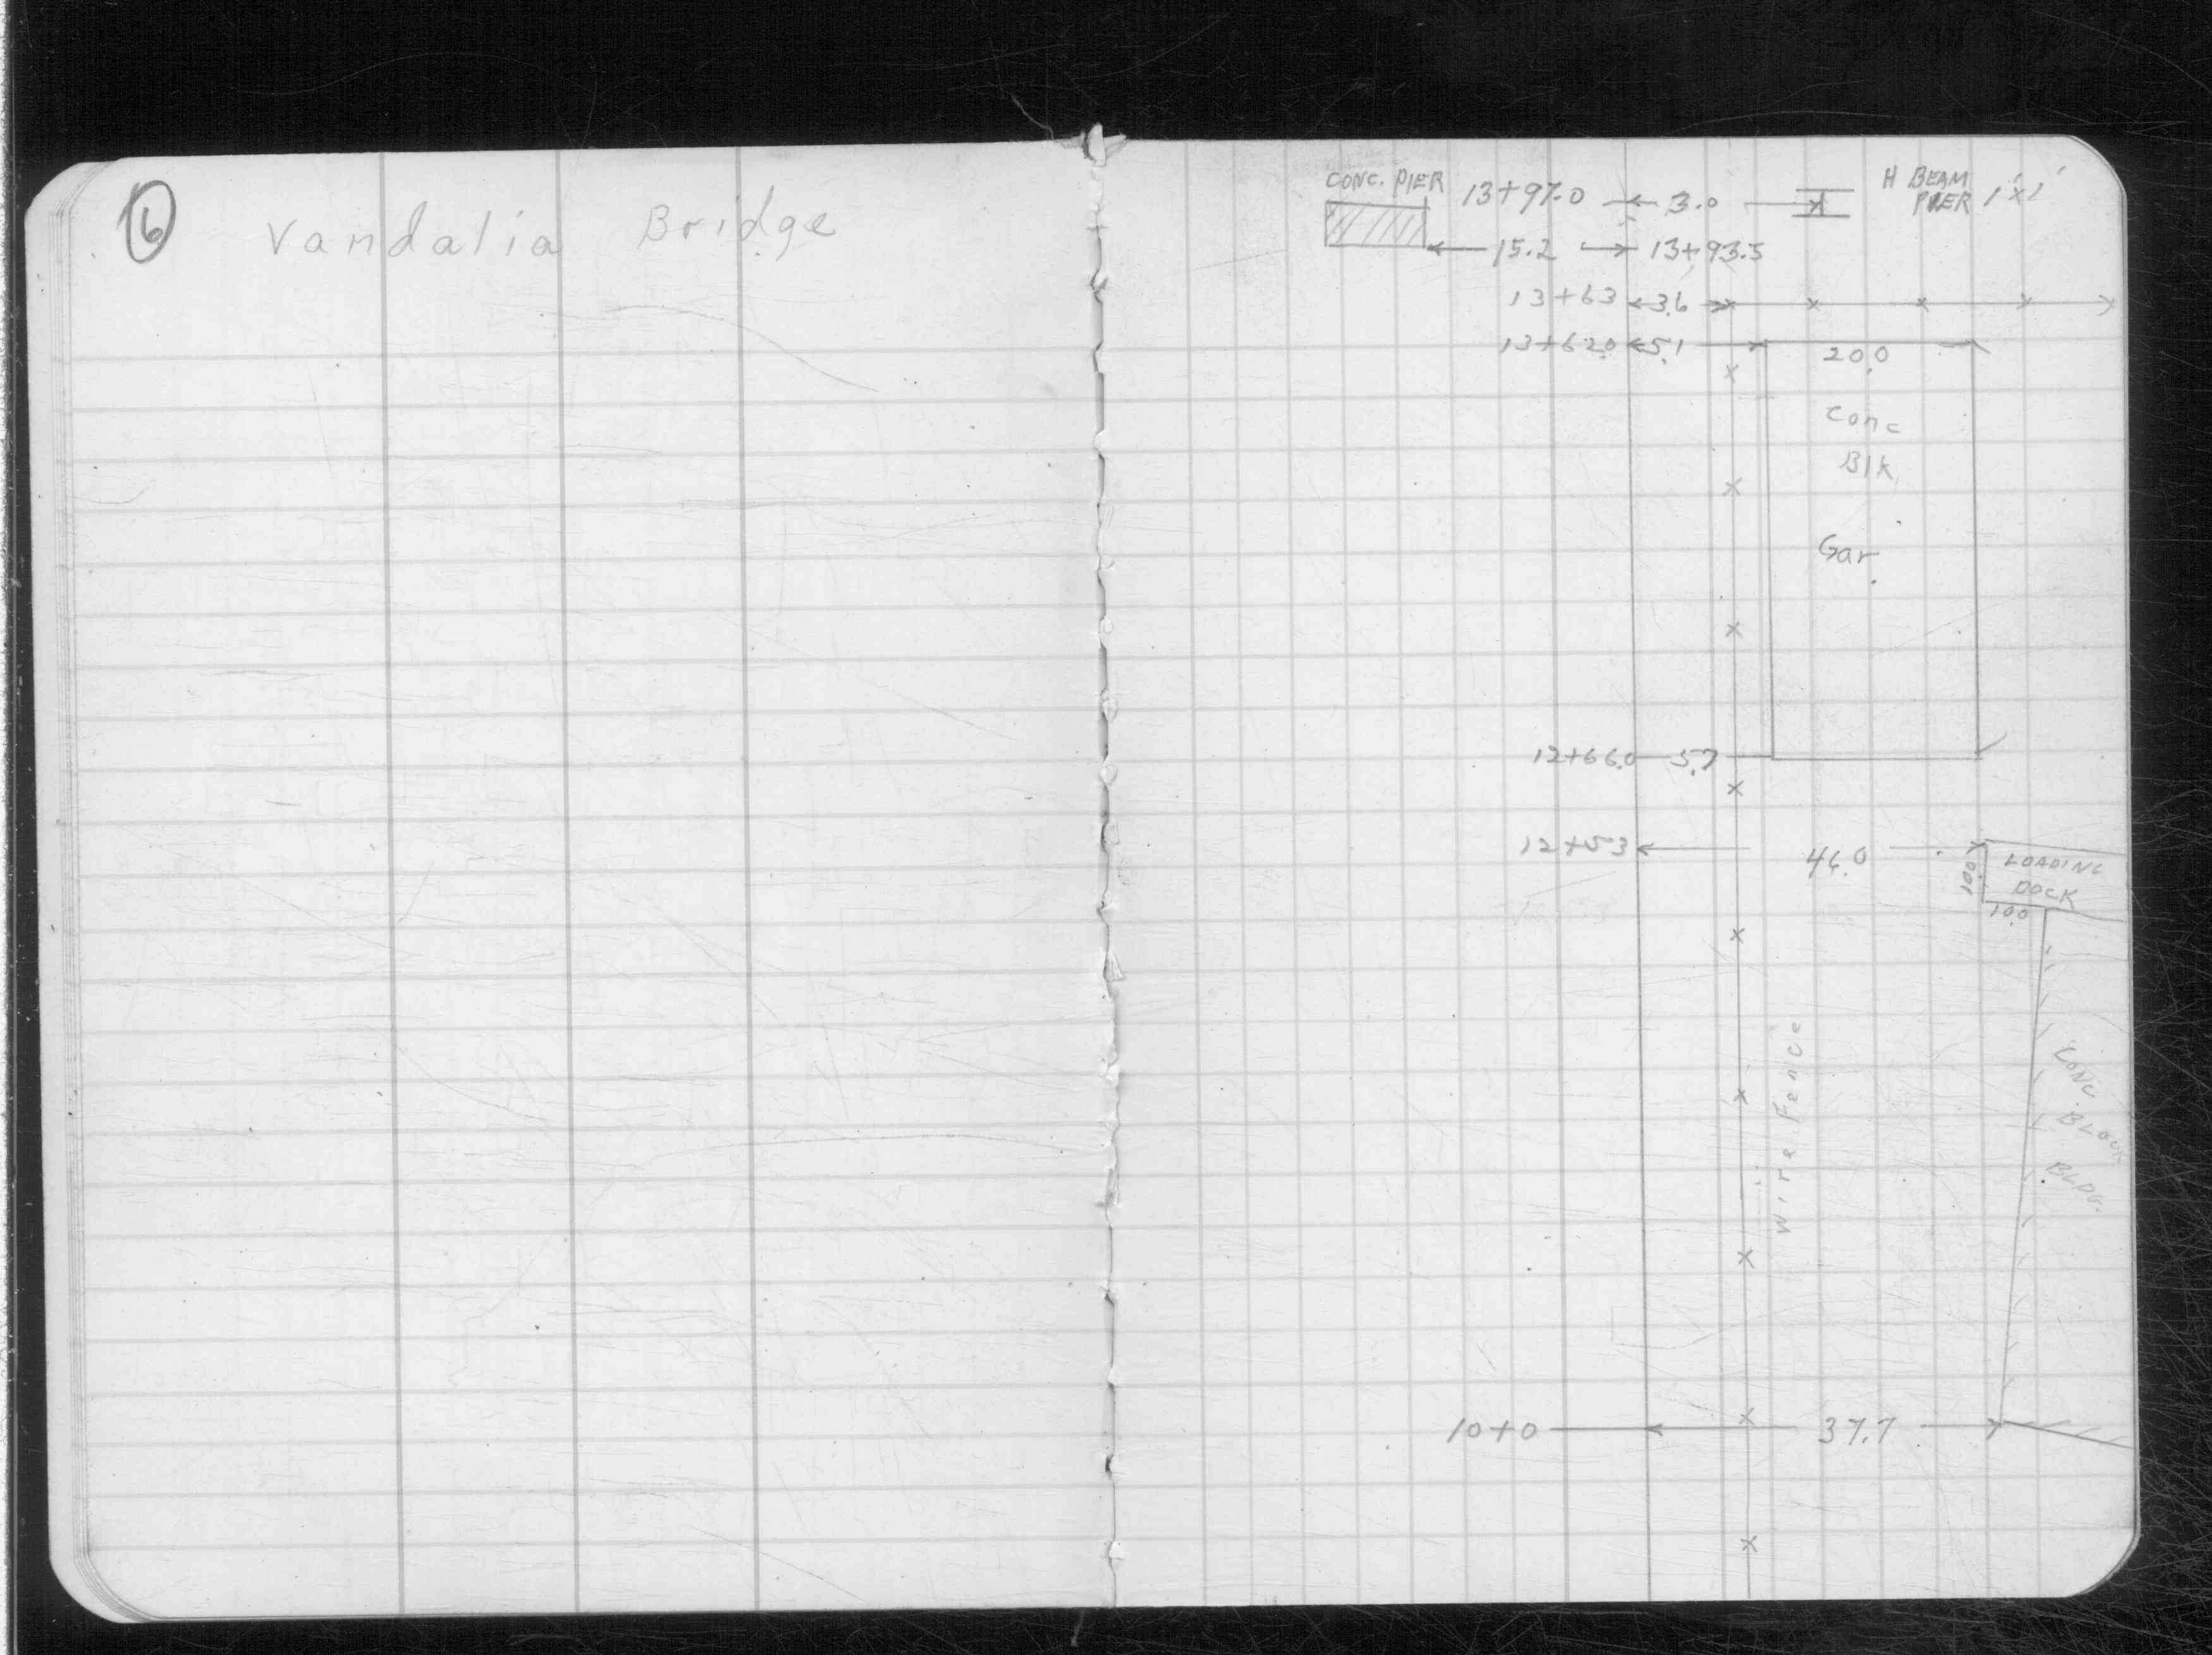 6
Vandalia Bridge
CONC. PIER 13+97.0 3.0 H BEAM
PIER 1'x1'
15.2 13+93.5
13+63 3.6
13+62.0 5.1 20.0
Conc
Blk
Gar.
12+66.0 5.7
12+53 46.0
10.0
LOADING
DOCK
10.0
Wire Fence
CONC
BLOCK
BLDG.
10+0 37.7